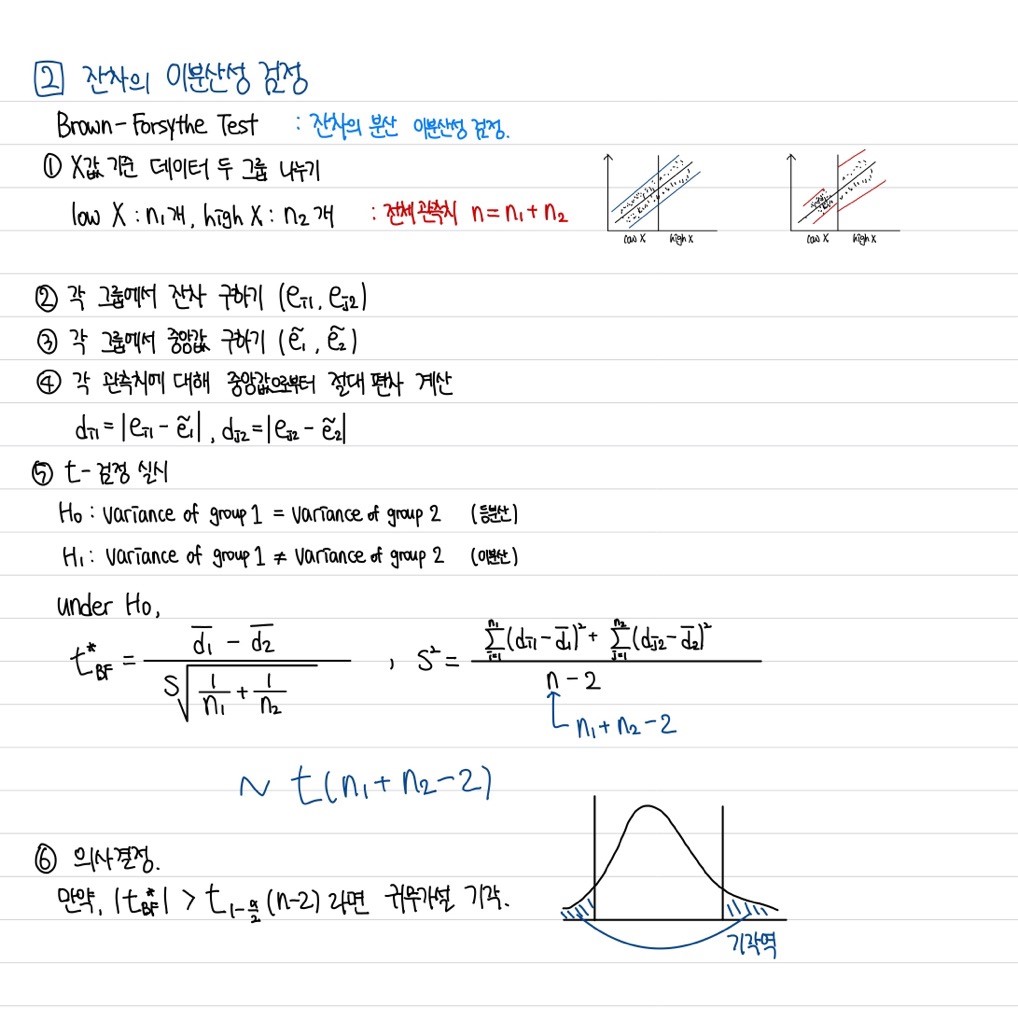 2 잔차의 이분산성 검정
Brown-Forsythe Test : 잔차의 분산 이분산성 검정.
① X값 기준 데이터 두 그룹 나누기
low X : n₁개, high X : n₂개 : 전체 관측치 n = n₁ + n₂
low X high X low X high X
② 각 그룹에서 잔차 구하기 (eᵢ₁, eⱼ₂)
③ 각 그룹에서 중앙값 구하기 (ẽ₁, ẽ₂)
④ 각 관측치에 대해 중앙값으로부터 절대 편차 계산
dᵢ₁ = |eᵢ₁ - ẽ₁|, dⱼ₂ = |eⱼ₂ - ẽ₂|
⑤ t-검정 실시
H₀ : variance of group 1 = variance of group 2 (등분산)
H₁ : variance of group 1 ≠ variance of group 2 (이분산)
under H₀,
t*_BF = (d̄₁ - d̄₂) / (S√(1/n₁ + 1/n₂)) , S² = (Σ_{i=1}^{n₁}(dᵢ₁ - d̄₁)² + Σ_{j=1}^{n₂}(dⱼ₂ - d̄₂)²) / (n - 2)
n₁ + n₂ - 2
~ t(n₁ + n₂ - 2)
⑥ 의사결정.
만약, |t*_BF| > t_{1-α/2}(n-2) 라면 귀무가설 기각.
기각역